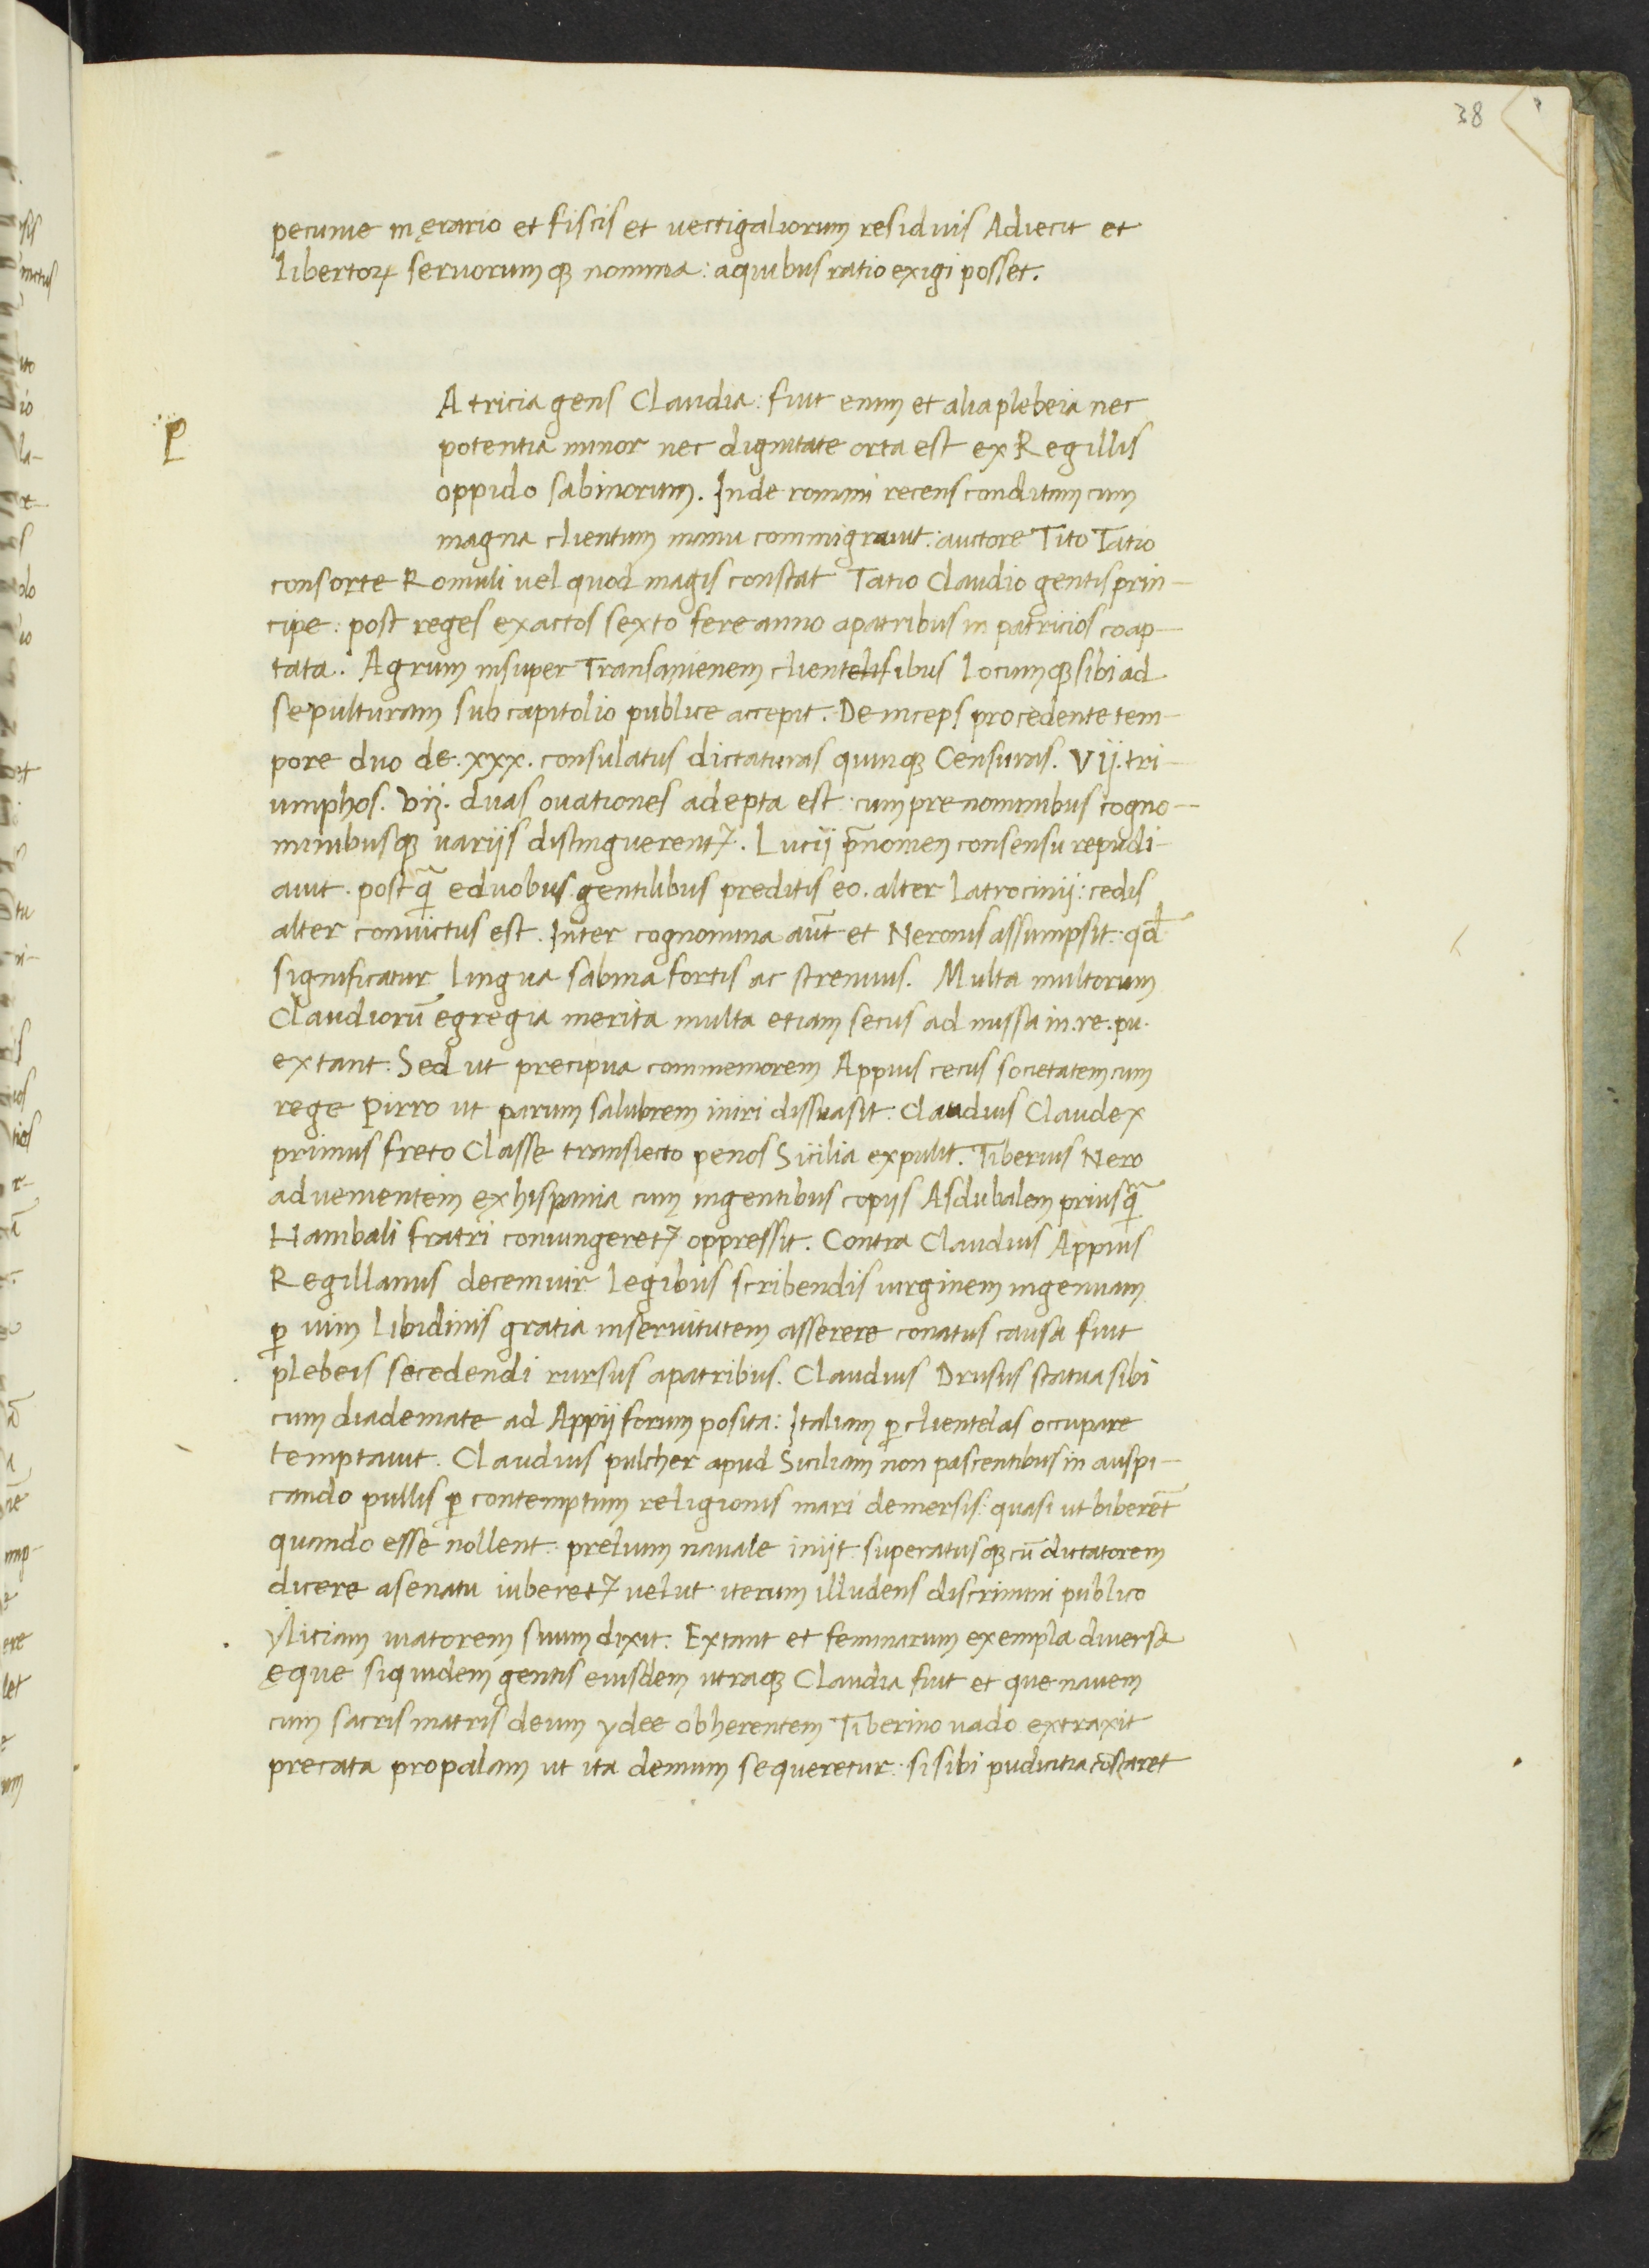 38
pecunie in ęrario et fiscis et vectigaliorum residuis Adiecit et
libertoꝝ seruorumqꝫ nomina: aquibus ratio exigi posset.
P
Atricia gens Claudia: fuit enim et alia plebeia nec
potentia minor nec dignitate orta est ex Regillis
oppido sabinorum. Inde romam recens conditam cum
magna clientum manu commigrauit: auctore Tito Tatio
consorte Romuli uel quod magis constat Tatio Claudio gentis prin-
cipe: post reges exactos sexto fere anno apatribus in patricios coap-
tata. Agrum insuper Transanienem clientelisibus locumqꝫ sibi ad
sepulturam sub capitolio publice accepit. Deinceps procedente tem-
pore duo de .xxx. consulatus dictaturas quinqꝫ Censuras. Vij. tri-
umphos. Vij. duas ouationes adepta est: cum prenominibus cogno-
minibusqꝫ uarijs distinguerent⁊. Lucij p̄nomen consensu repudi-
auit. postq̄ eduobus gentilibus preditis eo. alter latrocinij: cedis
alter conuictus est. Inter cognomina aūt et Neronis assumpsit: qđ
significatur lingua sabina fortis ac strenuus. Multa multorum
Claudiorū egregia merita multa etiam secus ad missa in .re. pu.
extant: Sed ut precipua commemorem Appius cecus societatem cum
rege Pirro ut parum salubrem iniri dissuasit: Claudius Claudex
primus freto Classe transiecto penos Sicilia expulit. Tiberius Nero
aduenientem ex hispania cum ingentibus copijs Asdubalem priusq̄
Hanibali fratri coniungeret⁊ oppressit. Contra Claudius Appius
Regillanus decemuir legibus scribendis uirginem ingenuam
ꝑ uim libidinis gratia inseruitutem asserere conatus causa fuit
plebeis secedendi rursus apatribus. Claudius Drusus statua sibi
cum diademate ad Appij forum posita: Italiam ꝑ clientelas occupare
temptauit. Claudius pulcher apud Siciliam non pascentibus in auspi-
cando pullis ꝑ contemptum religionis mari demersis: quasi ut biberēt
quando esse nollent: prelium nauale inijt: superatusqꝫ cū dictatorem
dicere asenatu iuberet⁊ uelut iterum illudens discrimini publico
yliciam uiatorem suum dixit: Extant et feminarum exempla diuersa
ęque siquidem gentis eiusdem utraqꝫ Claudia fuit et que nauem
cum sacris matris deum ydee obherentem Tiberino uado extraxit
precata propalam ut ita demum sequeretur: si sibi pudicitia cōstaret